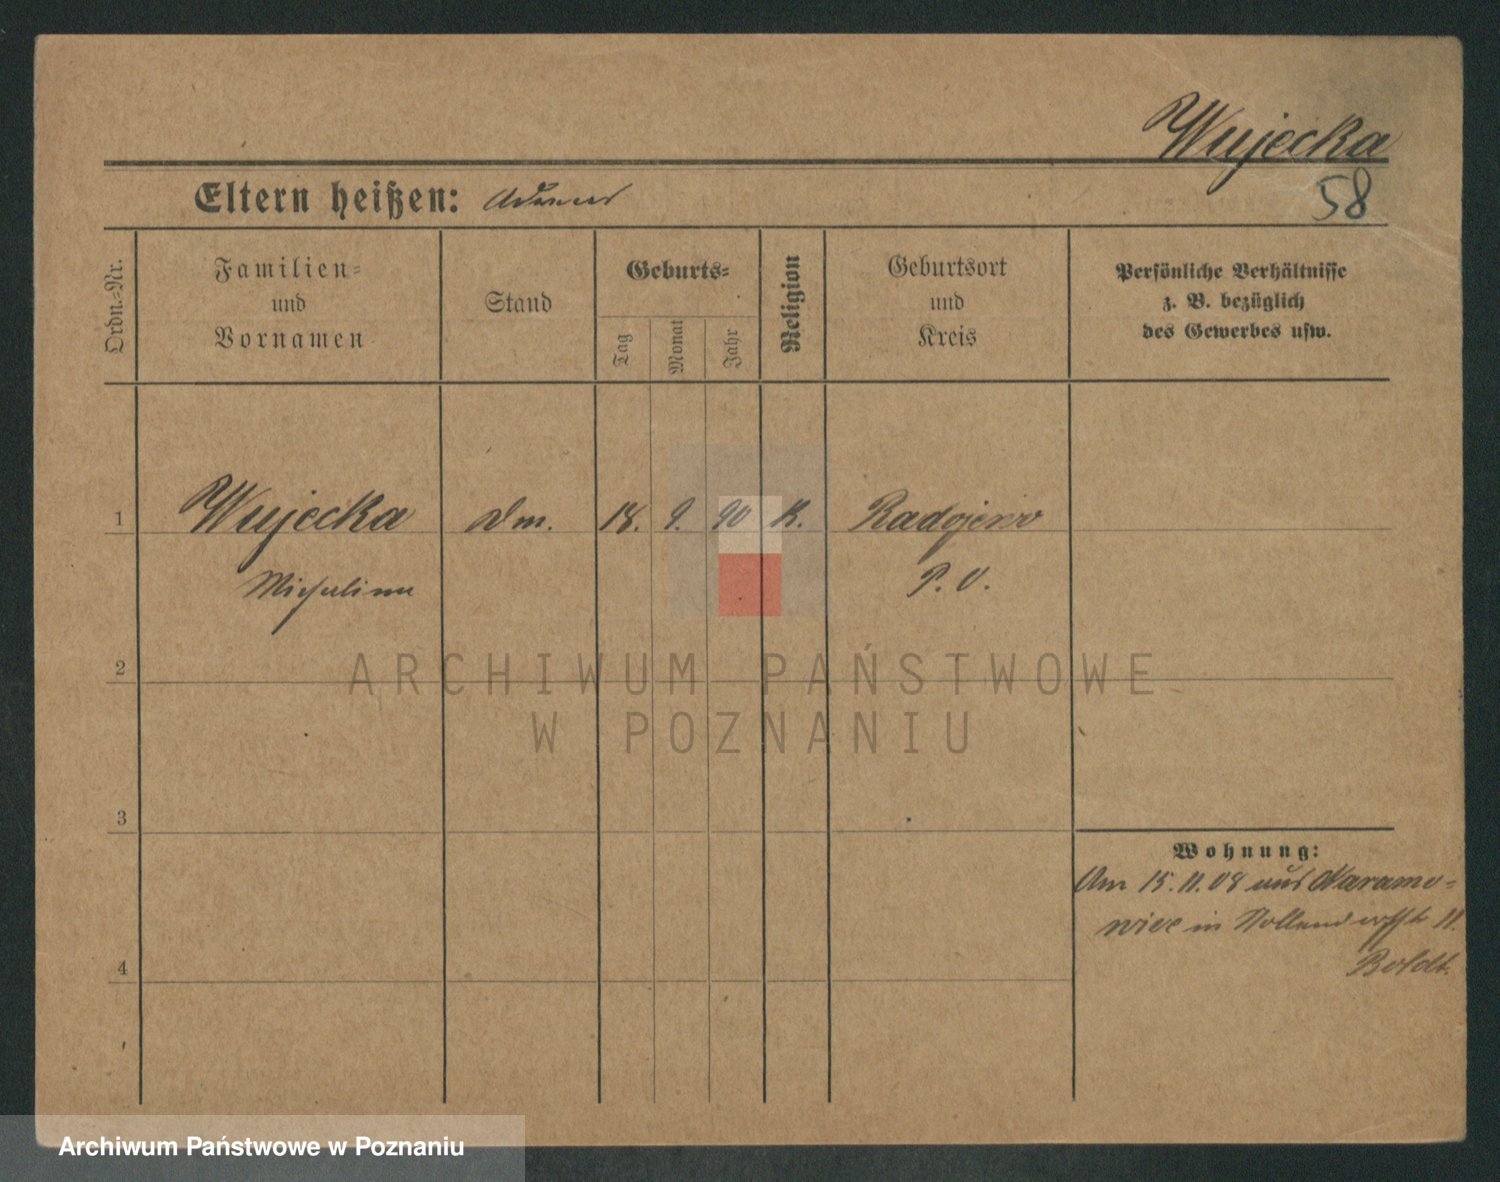 Wujecka
58
Eltern heißen:
Ordn.-Nr.
Familien-
und
Vornamen
Stand
Geburts-
Tag
Monat
Jahr
Religion
Geburtsort
und
Kreis
Persönliche Verhältnisse
z. B. bezüglich
des Gewerbes usw.
1 Wujecka Dm. 18. 9. 90 K. Radojewo
Michalina P. O.
2
ARCHIWUM PAŃSTWOWE
W POZNANIU
3
Wohnung:
Am 15.11.08 aus Naramo-
wice in Nollendorfstr 11.
4
Boldt.
Archiwum Państwowe w Poznaniu